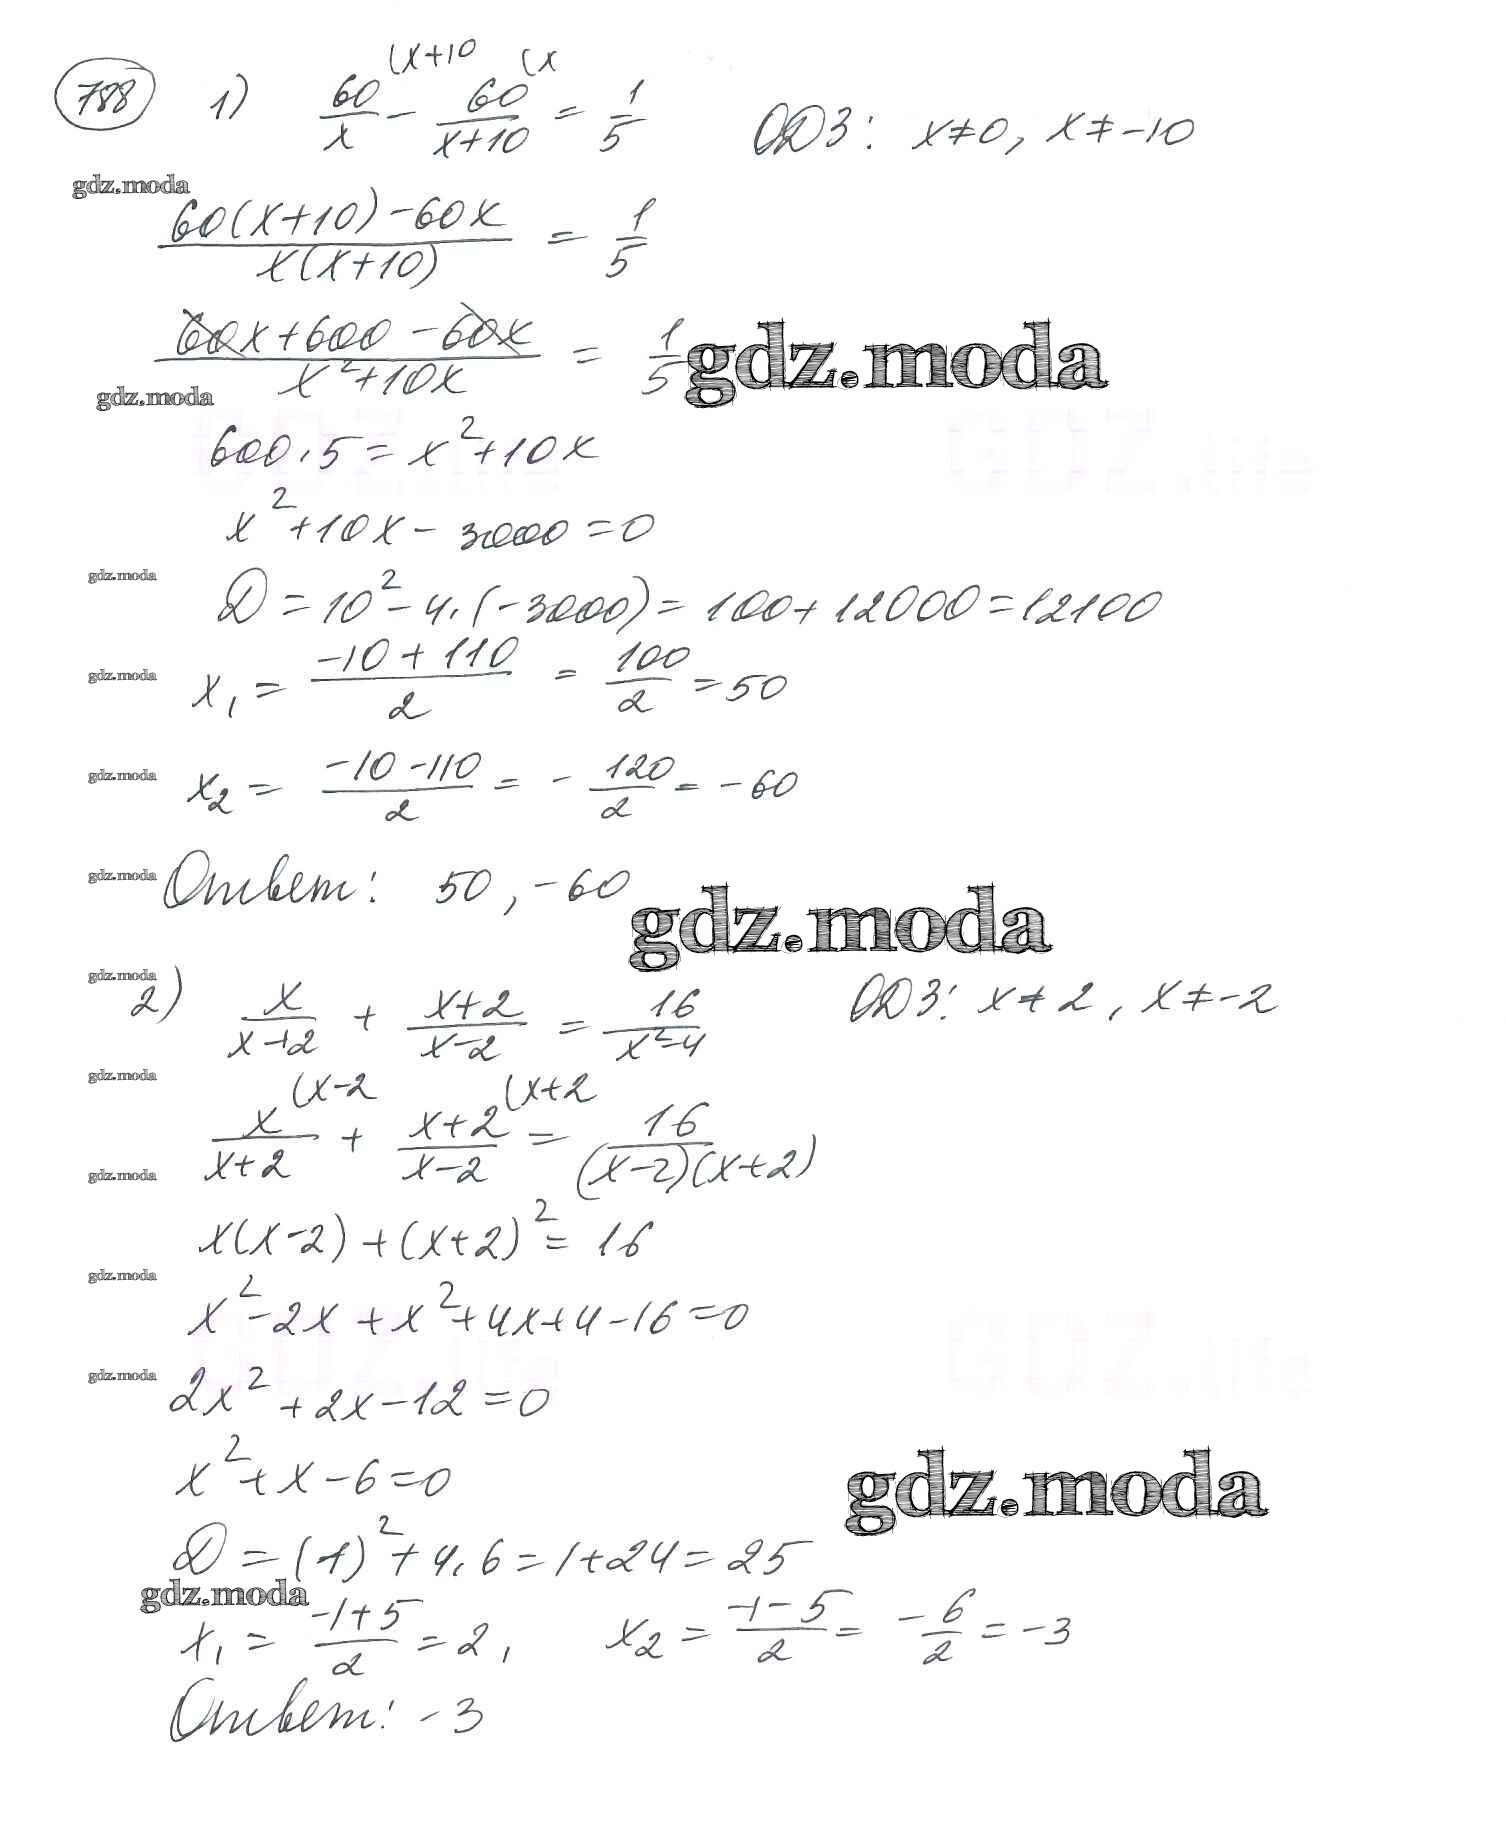 788 1) 60/x (x+10 - 60/(x+10) (x = 1/5 ОДЗ: x≠0, x≠-10
gdz.moda
(60(x+10)-60x)/(x(x+10)) = 1/5
(60x+600-60x)/(x²+10x) = 1/5
gdz.moda
gdz.moda
600·5=x²+10x
x²+10x-3000=0
gdz.moda
D=10²-4·(-3000)=100+12000=12100
gdz.moda
x₁=(-10+110)/2 = 100/2 =50
gdz.moda
x₂=(-10-110)/2 = -120/2 = -60
gdz.moda
Ответ: 50, -60
gdz.moda
gdz.moda
2) x/(x+2) + (x+2)/(x-2) = 16/(x²-4) ОДЗ: x≠2, x≠-2
gdz.moda
x/(x+2) (x-2 + (x+2)/(x-2) (x+2 = 16/((x-2)(x+2))
gdz.moda
x(x-2)+(x+2)²=16
gdz.moda
x²-2x+x²+4x+4-16=0
gdz.moda
2x²+2x-12=0
x²+x-6=0
gdz.moda
D=(1)²+4·6=1+24=25
gdz.moda
x₁=(-1+5)/2=2, x₂=(-1-5)/2= -6/2=-3
Ответ: -3